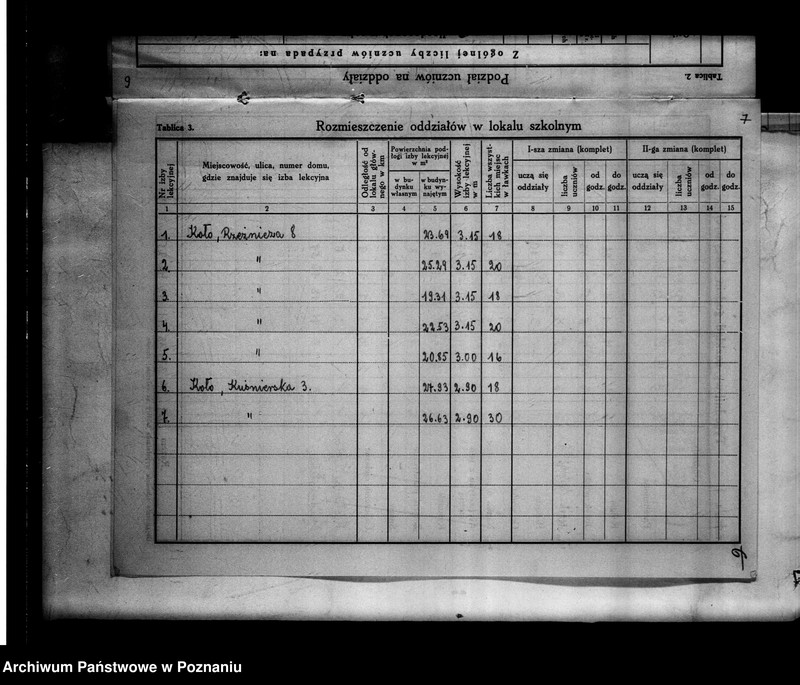 Z ogólnej liczby uczniów przypada na:
Tablica 2.
Podział uczniów na oddziały
6
7
Tablica 3.
Rozmieszczenie oddziałów w lokalu szkolnym
Nr. izby lekcyjnej
Miejscowość, ulica, numer domu, gdzie znajduje się izba lekcyjna
Odległość od lokalu głównego w km
Powierzchnia podłogi izby lekcyjnej w m²
w budynku własnym
w budynku wynajętym
Wysokość izby lekcyjnej w m
Liczba wszystkich miejsc w ławkach
I-sza zmiana (komplet)
uczą się oddziały
liczba uczniów
od godz.
do godz.
II-ga zmiana (komplet)
uczą się oddziały
liczba uczniów
od godz.
do godz.
1 2 3 4 5 6 7 8 9 10 11 12 13 14 15
1. Koło, Rzeźnicza 8 23.69 3.15 18
2. " 25.29 3.15 20
3. " 19.31 3.15 18
4. " 22.53 3.15 20
5. " 20.85 3.00 16
6. Koło, Kuśnierska 3. 27.93 2.90 18
7. " 26.63 2.90 30
Archiwum Państwowe w Poznaniu